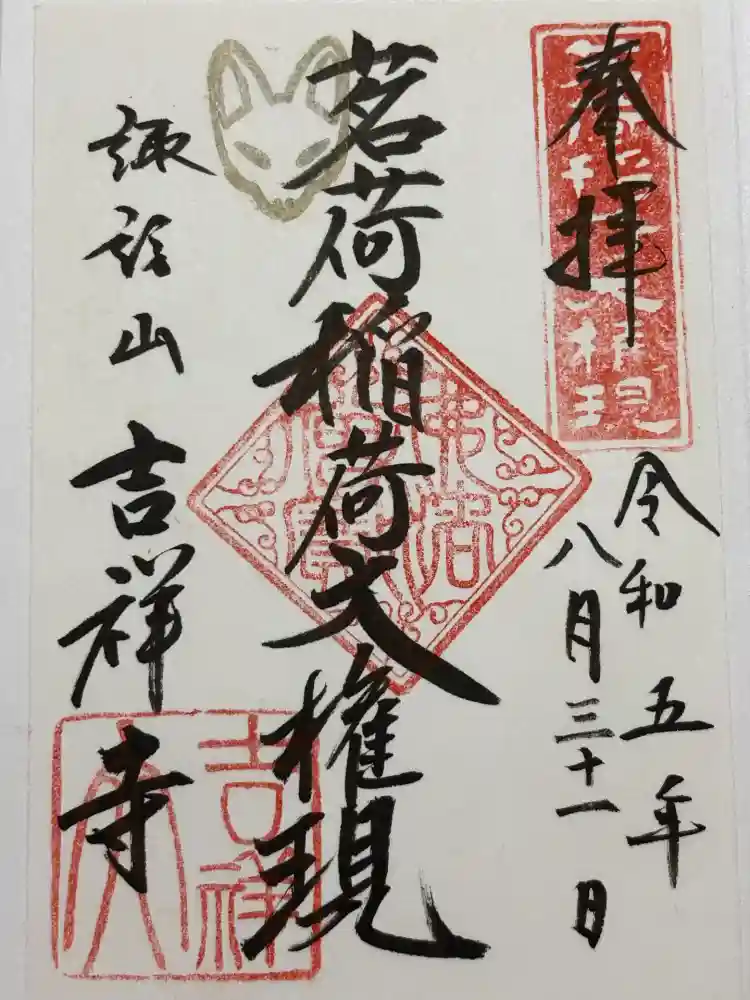 奉拝
令和五年
八月三十一日
茗荷稲荷大権現
諏訪山
吉祥寺
佛法
吉祥